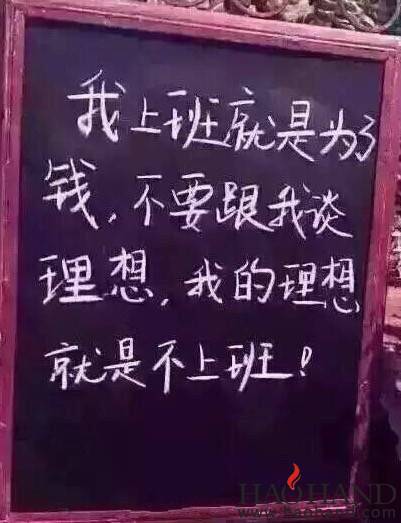 我上班就是为了
钱，不要跟我谈
理想，我的理想
就是不上班！
HAOHAND
www.haohand.com